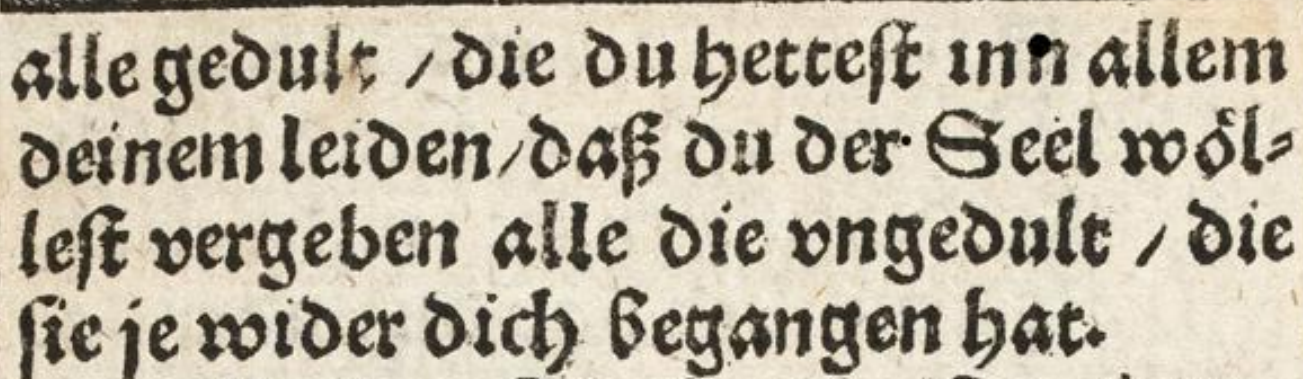 alle gedult / die du hettest inn allem
deinem leiden / daß du der Seel wöl-
lest vergeben alle die vngedult / die
sie je wider dich begangen hat.